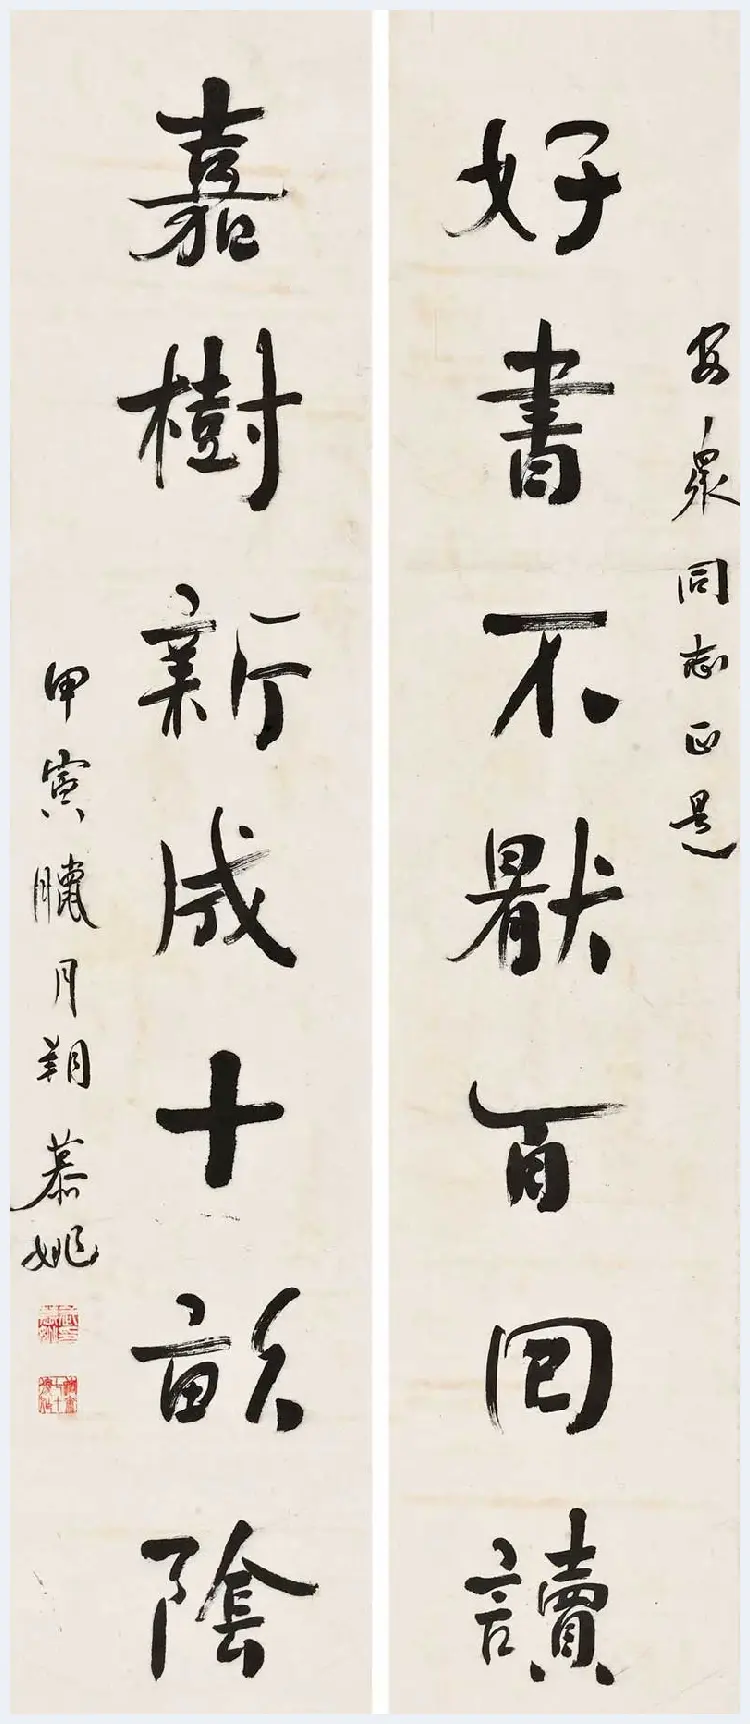 安泉同志正是
好書不猒百回讀
嘉樹新成十畝陰
甲寅臘月朔慕姚